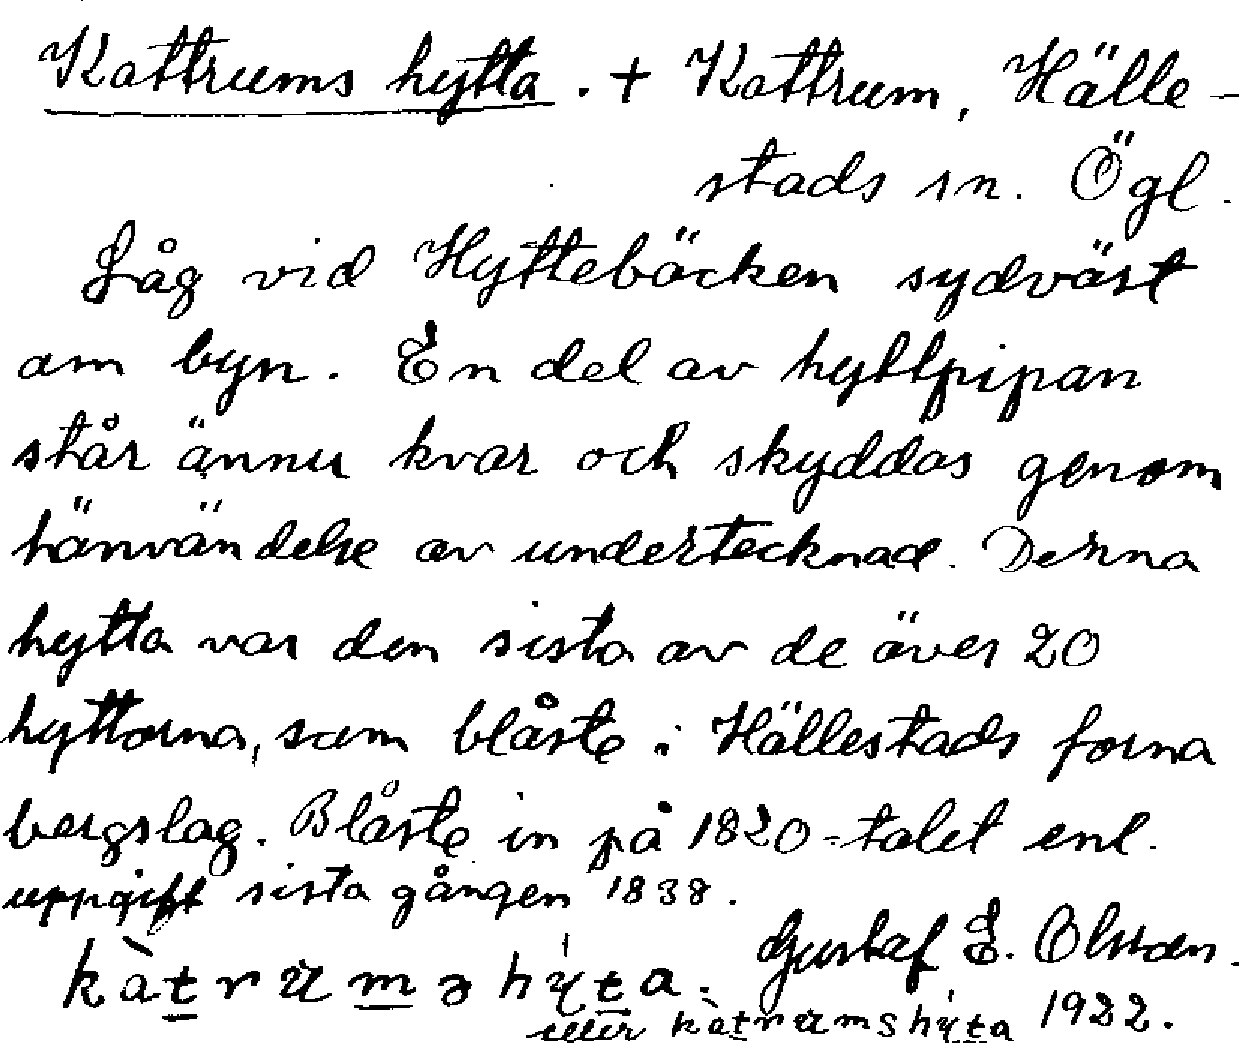 Kattrums hytta. + Kattrum, Hälle-
stads sn. Ögl.
Låg vid Hyttebäcken sydväst
om byn. En del av hyttpipan
står ännu kvar och skyddas genom
hänvändelse av undertecknad. Denna
hytta var den sista av de över 20
hyttorna, som blåste i Hällestads forna
bergslag. Blåste in på 1820-talet enl.
uppgift sista gången 1838.
Gustaf E. Olsson.
kàtrumshýta.
eller kàtrumshýta 1922.